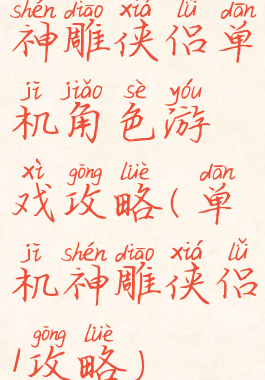 shén diāo xiá lǚ dān
神雕侠侣单
jī jiǎo sè yóu
机角色游
xì gōng lüè dān
戏攻略(单
jī shén diāo xiá lǚ
机神雕侠侣
gōng lüè
l攻略)